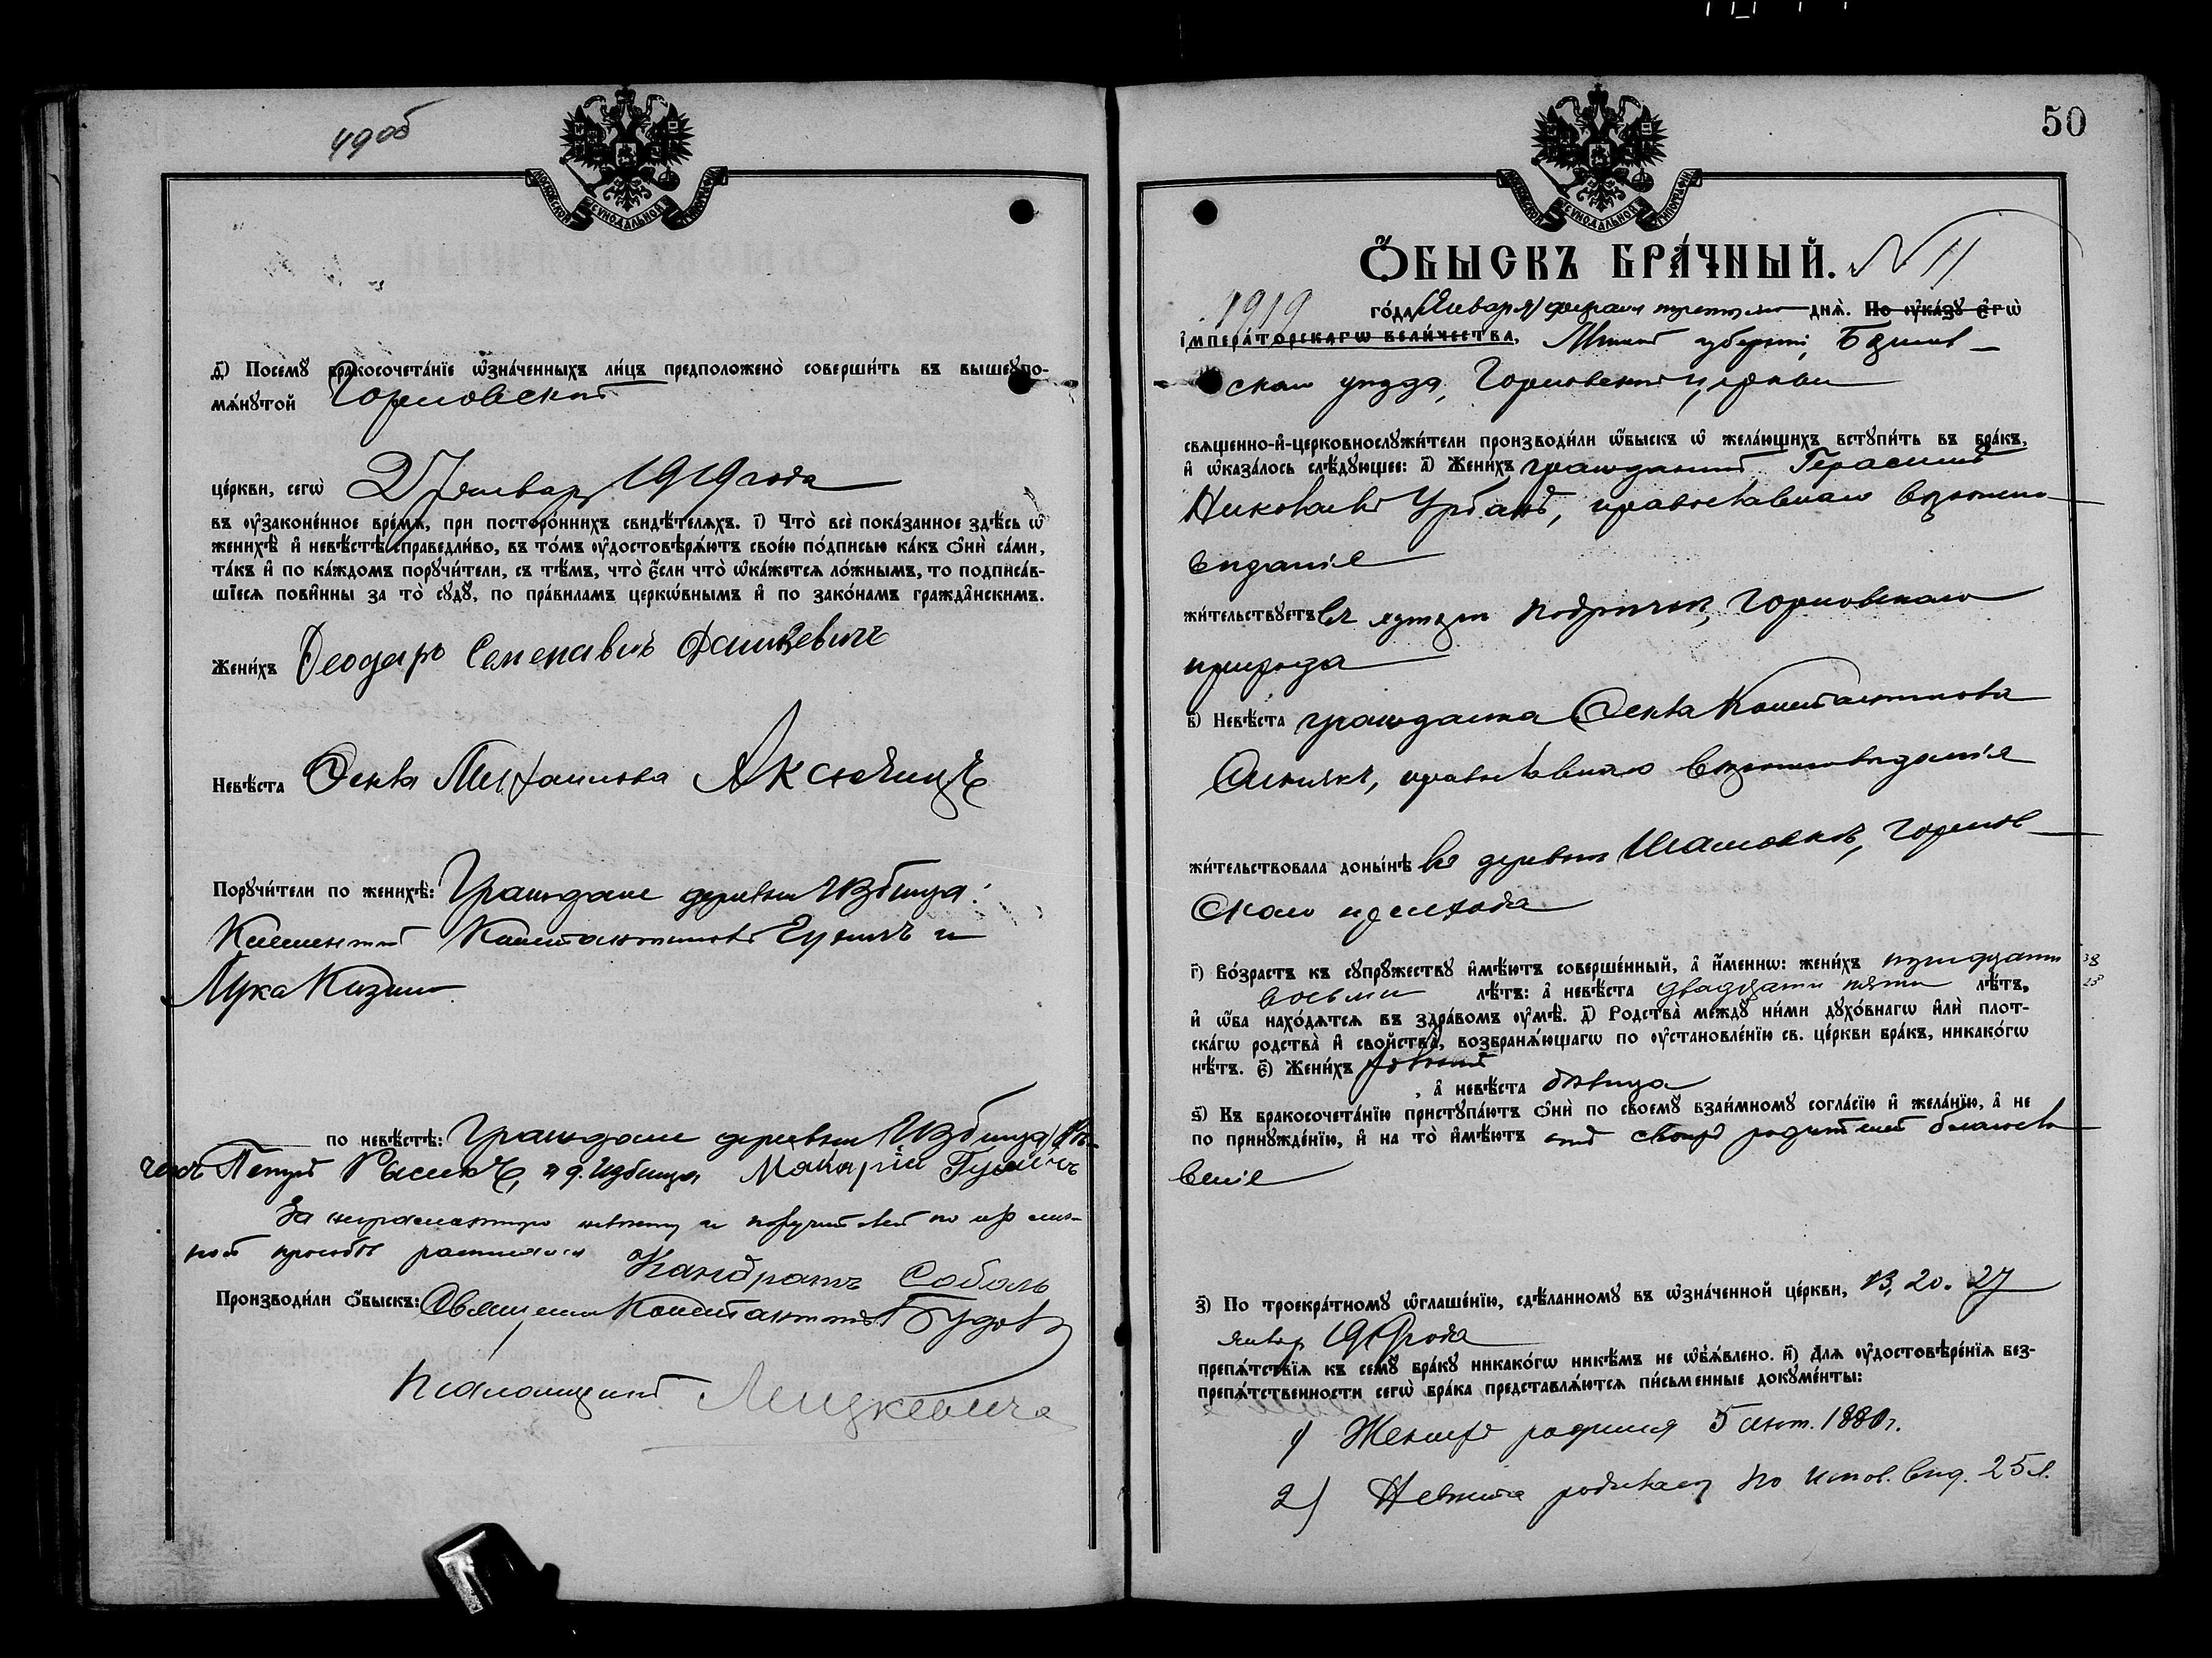 49 об
МОСКОВСКОЙ СѴНОДАЛЬНОЙ ТИПОГРАФІИ
д҃) Посемꙋ бракосочета́нїе ѡ҆зна́ченныхъ ли́цъ предположено̀ соверши́ть въ вышеꙋпо-
мѧ́нꙋтой Горновской
це́ркви, сегѡ̀ 27 января 1919 года
въ ᲂу҆зако́ненное вре́мѧ, при посторо́ннихъ свидѣ́телѧхъ. і҃) Что̀ всѐ пока́занное здѣ́сь ѡ҆
женихѣ̀ и҆ невѣ́стѣ справедли́во, въ то́мъ ᲂу҆достовѣрѧ́ютъ свое́ю по́дписью ка́къ ѻ҆нѝ са́ми,
та́къ и҆ по ка́ждомъ порꙋчи́тели, съ тѣ́мъ, что̀ є҆́сли что̀ ѡ҆ка́жетсѧ ло́жнымъ, то подписа́в-
шїесѧ пови́нны за то̀ сꙋдꙋ̀, по пра́виламъ церкѡ́внымъ и҆ по зако́намъ гражда́нскимъ.
Жени́хъ Феодаръ Семенавичъ
Невѣ́ста Фекла Михаилова Аксючицъ
Порꙋчи́тели по женихѣ̀: Граждане деревни Избища:
Климентий Константиновъ и
Лука
по невѣ́стѣ: Граждане деревни Избища
Петръ и д. Избища Макарій
За неграмотную невѣсту и поручителей по их лич-
ной просьбѣ расписался Кандратъ Соболь
Производи́ли ѻ҆́быскъ: Священникъ Константинъ
Псаломщикъ Мицкевичъ
50
МОСКОВСКОЙ СѴНОДАЛЬНОЙ ТИПОГРАФІИ
Ѻ҆́БЫСКЪ БРА́ЧНЫЙ. N 11
1919 го́да Января/февраля днѧ̀. По ᲂу҆ка́зꙋ є҆гѡ̀
и҆мпера́торскагѡ вели́чества, Минской губерніи, Борисов-
скаго уѣзда, Горновской церкви
свѧще́нно-и҆-церковнослꙋжи́тели производи́ли ѡ҆́быскъ ѡ҆ жела́ющихъ встꙋпи́ть въ бра́къ,
и҆ ѡ҆каза́лось слѣ́дꙋющее: а҃) Жени́хъ гражданинъ Герасимъ
Николаевъ Урбанъ, православнаго вѣроиспо-
вѣданіе
жи́тельствꙋетъ въ Горновскаго
прихода
в҃) Невѣ́ста гражданка Фекла Константинова
православнаго вѣроисповѣданія
жи́тельствовала доны́нѣ въ деревнѣ Горнов-
скаго прихода
г҃) Во́зрастъ къ сꙋпрꙋ́жествꙋ и҆мѣ́ютъ соверше́нный, а҆ и҆́менно: жени́хъ тридцати 38
восьми лѣ́тъ: а҆ невѣ́ста двадцати пяти лѣ́тъ, 25
и҆ ѡ҆́ба нахо́дѧтсѧ въ здра́вомъ ᲂу҆мѣ̀. д҃) Родства̀ междꙋ̀ ни́ми дꙋхо́внагѡ и҆лѝ плот-
ска́гѡ родства̀ и҆ сво́йства, возбранѧ́ющагѡ по ᲂу҆становле́нїю св. це́ркви бра́къ, никако́гѡ
нѣ́тъ. є҃) Жени́хъ вдовый
, а҆ невѣ́ста дѣвица
ѕ҃) Къ бракосочета́нїю пристꙋпа́ютъ ѻ҆нѝ по своемꙋ̀ взаи́мномꙋ согла́сїю и҆ жела́нїю, а҆ не
по принꙋжде́нїю, и҆ на то̀ и҆мѣ́ютъ отъ своихъ родителей благосло-
веніе
з҃) По троекра́тномꙋ ѡ҆глаше́нїю, сдѣ́ланномꙋ въ ѡ҆зна́ченной це́ркви, 13, 20. 27
январ 1919 года
препѧ́тствїѧ къ семꙋ̀ бра́кꙋ никако́гѡ никѣ́мъ не ѡ҆б̾ѧ́влено. и҃) Длѧ ᲂу҆достовѣре́нїѧ без-
препѧ́тственности сегѡ̀ бра́ка представлѧ́ютсѧ пи́сьменные докꙋме́нты:
1) Женихъ родился 5
2) Невѣста родилась по испов. вѣд. 25 л.